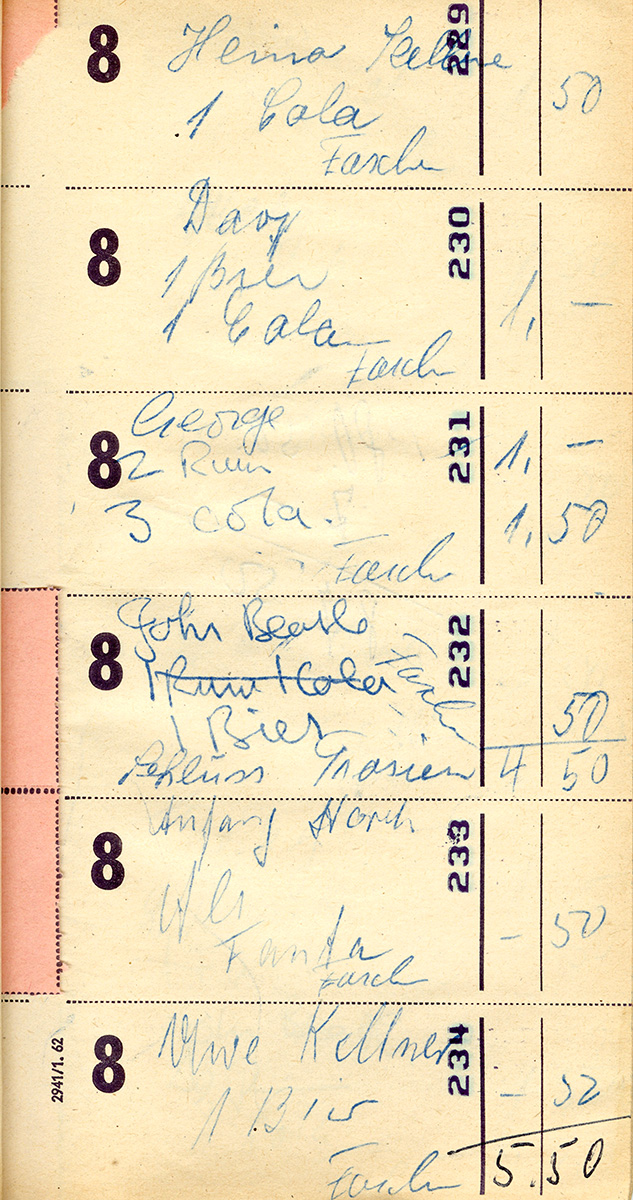 8 Heinz Kellne 229
1 Cola 50
Fasch
8 Davy 230
1 Bier
1 Cola 1, –
Fasch
George 231
8 2 Rum 1, –
3 cola. 1, 50
Fasch
John Beatle 232
8 1 Rum 1 Cola Fasch
1 Bier 50
Schluss 4 50
Anfang 233
8 Ali
Fanta – 50
Fasch
8 Uwe Kellner 234
1 Bier – 50
Fasch 5.50
2941/1. 62